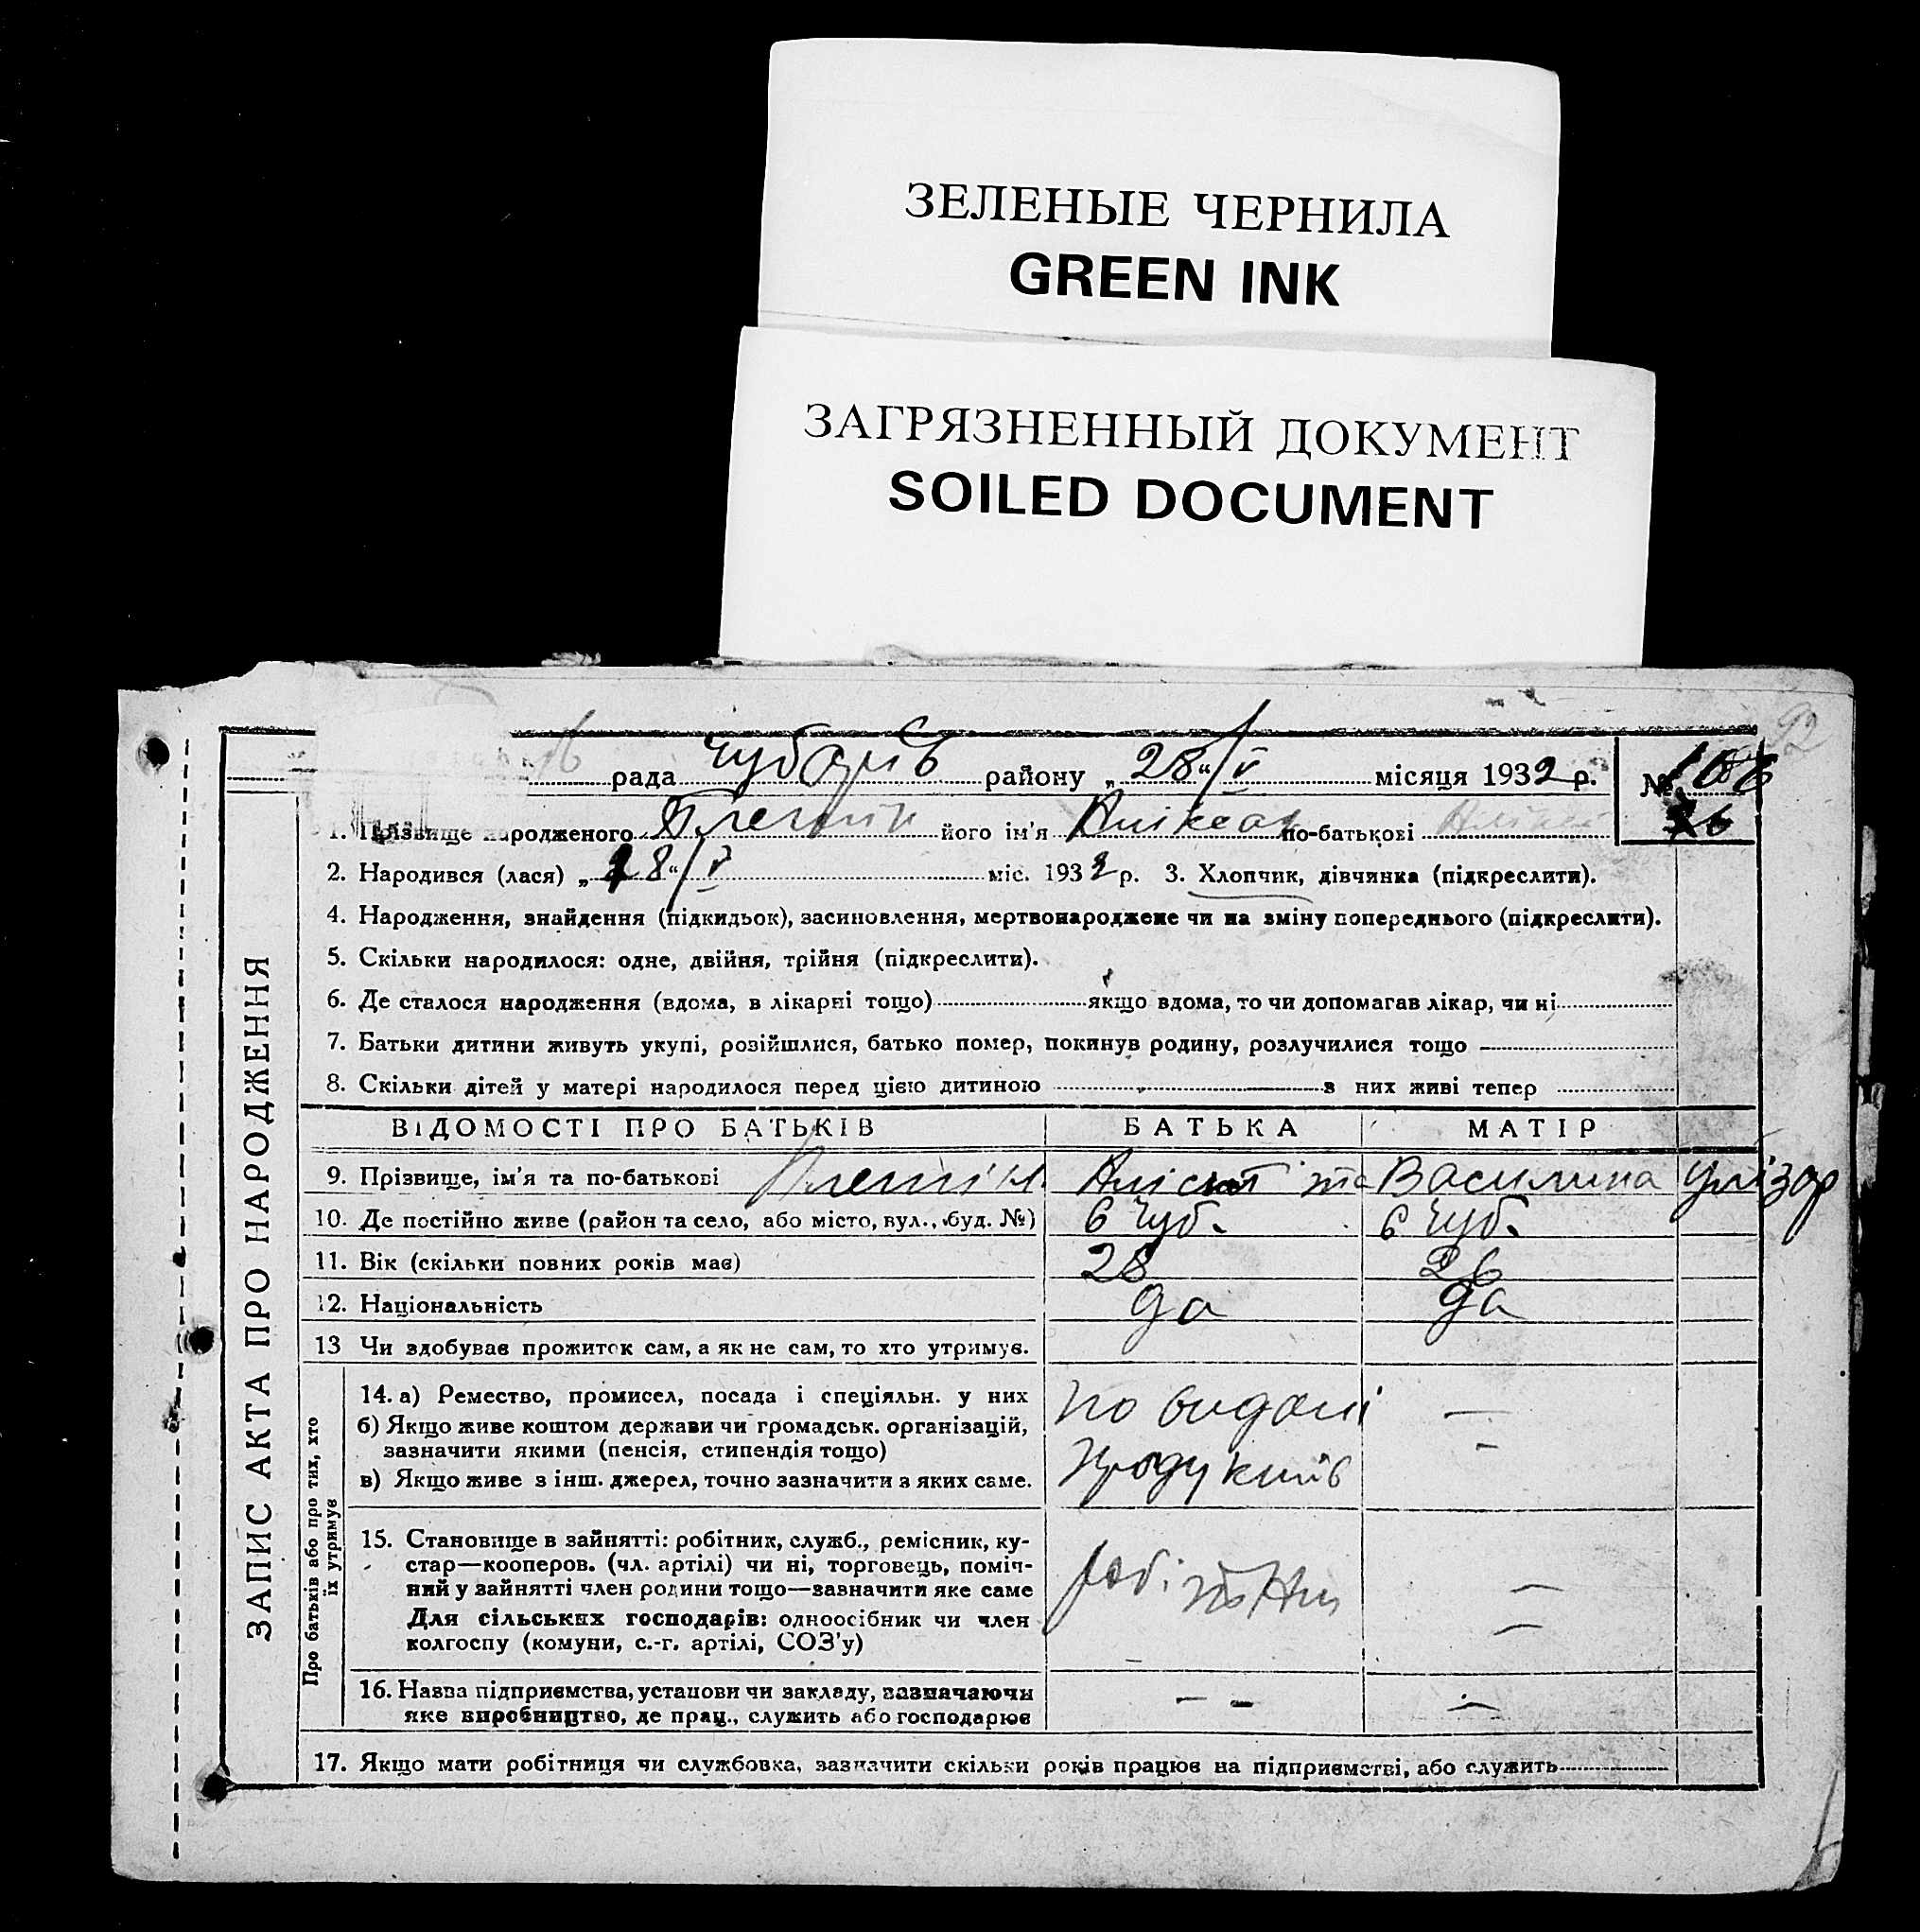 ЗЕЛЕНЫЕ ЧЕРНИЛА
GREEN INK
ЗАГРЯЗНЕННЫЙ ДОКУМЕНТ
SOILED DOCUMENT
92
рада району „28“/V місяця 1932 р. №
1. Прізвище народженого його ім'я по-батькові
2. Народився (лася) „28“/V міс. 1932 р. 3. Хлопчик, дівчинка (підкреслити).
4. Народження, знайдення (підкидьок), засиновлення, мертвонароджене чи на зміну попереднього (підкреслити).
5. Скільки народилося: одне, двійня, трійня (підкреслити).
6. Де сталося народження (вдома, в лікарні тощо) якщо вдома, то чи допомагав лікар, чи ні
7. Батьки дитини живуть укупі, розійшлися, батько помер, покинув родину, розлучилися тощо
8. Скільки дітей у матері народилося перед цією дитиною з них живі тепер
ВІДОМОСТІ ПРО БАТЬКІВ БАТЬКА МАТІР
9. Прізвище, ім'я та по-батькові та Василина
10. Де постійно живе (район та село, або місто, вул., буд. №) с Чуб. с Чуб.
11. Вік (скільки повних років має) 28 26
12. Національність
13 Чи здобував прожиток сам, а як не сам, то хто утримує.
14. а) Ремество, промисел, посада і спеціяльн. у них
б) Якщо живе коштом держави чи громадськ. організацій,
зазначити якими (пенсія, стипендія тощо) —
в) Якщо живе з інш. джерел, точно зазначити з яких саме.
15. Становище в зайнятті: робітник, служб., ремісник, ку-
стар—кооперов. (чл. артілі) чи ні, торговець, поміч-
ний у зайнятті член родини тощо—зазначити яке саме —
Для сільських господарів: одноосібник чи член
колгоспу (комуни, с.-г. артілі, СОЗ'у) —
16. Назва підприємства, установи чи закладу, зазначаючи
яке виробництво, де прац., служить або господарює — — —
17. Якщо мати робітниця чи службовка, зазначити скільки років працює на підприємстві, або служить
ЗАПИС АКТА ПРО НАРОДЖЕННЯ
Про батьків або про тих, хто
їх утримує